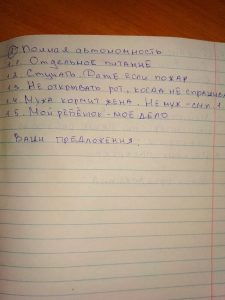 ① Полная автономность
1.1 Отдельное питание
1.2 Стучать. Даже если пожар
1.3 Не открывать рот, когда не спрашив
1.4 Мужа кормит жена. Не муж - сын. 1
1.5. Мой ребёнок - моё дело
Ваши предложения: